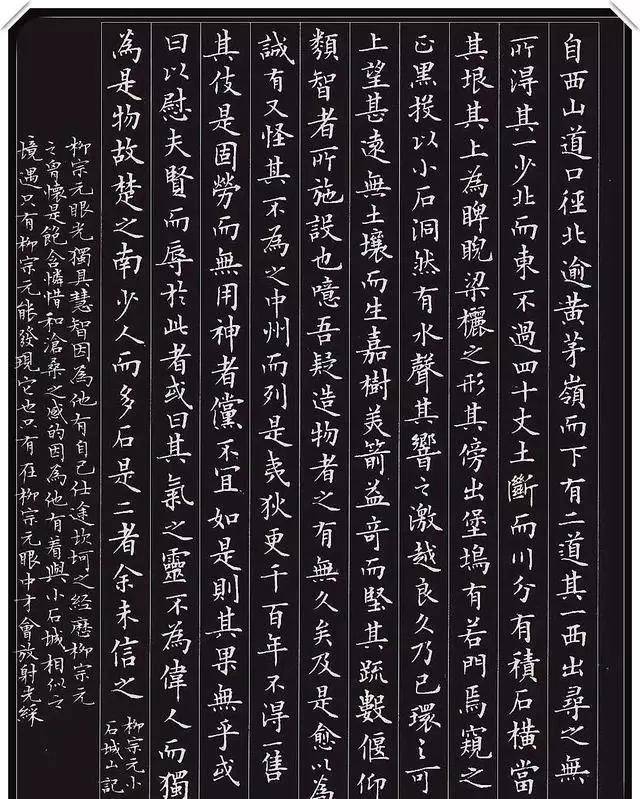 自西山道口徑北逾黃茅嶺而下有二道其一西出尋之無
所淂其一少北而東不過四十丈土斷而川分有積石橫當
其垠其上為睥睨梁欐之形其傍出堡塢有若門焉窺之
正黑投以小石洞然有水聲其響之激越良久乃已環之可
上望甚遠無土壤而生嘉樹美箭益奇而堅其疏數偃仰
類智者所施設也噫吾疑造物者之有無久矣及是愈以為
誠有又怪其不為之中州而列是夷狄更千百年不得一售
其伎是固勞而無用神者儻不宜如是則其果無乎或
曰以慰夫賢而辱於此者或曰其氣之靈不為偉人而獨
為是物故楚之南少人而多石是二者余未信之
柳宗元小
石城山記
柳宗元眼光獨具慧智因為他有自己仕途坎坷之經歷柳宗元
之曾懷是飽含憐惜和滄桑之感的因為他有着與小石城相似之
境遇只有柳宗元能發現它也只有在柳宗元眼中才會放射光綵